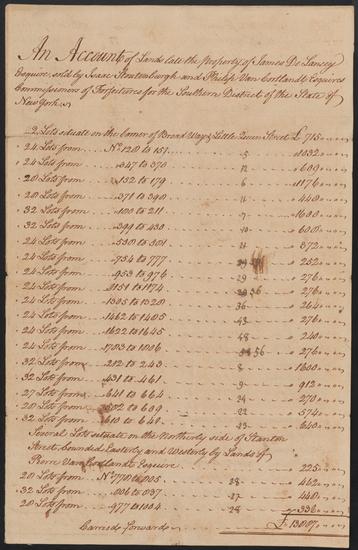 An Account of Lands late the property of James De Lancey
Esquire, sold by Isaac Stoutenburgh and Philip Van Cortlandt Esquires
Commissioners of Forfeitures for the Southern District of the State of
New York
2 Lots situate on the Corner of Broad Way & Little Queen Street £ 715
24 Lots from No. 128 to 151 5 1032
24 Lots from 347 to 370 12 609
28 Lots from 152 to 179 6 1176
20 Lots from 371 to 390 11 440
32 Lots from 180 to 211 7 1600
32 Lots from 399 to 430 10 600
24 Lots from 21 372
24 Lots from 754 to 777 252
24 Lots from 953 to 976 29 276
24 Lots from 1151 to 1174 36 276
24 Lots from 1305 to 1328 264
24 Lots from 1462 to 1485 276
24 Lots from 1622 to 1645 48 240
24 Lots from 1783 to 1806 56 276
32 Lots from 212 to 243 8 1600
32 Lots from 431 to 461 9 912
27 Lots from 641 to 664 24 270
28 Lots from to 609 22 574
32 Lots from 610 to 640 23 640
Several Lots situate on the Northerly side of Stanton
Street bounded Easterly and Westerly by Lands of
Pierre Van Cortlandt Esquire 225
28 Lots from No. 778 to 805 27 462
32 Lots from 806 to 837 27 440
28 Lots from 977 to 1004 28 336
Carried forward £ 13807